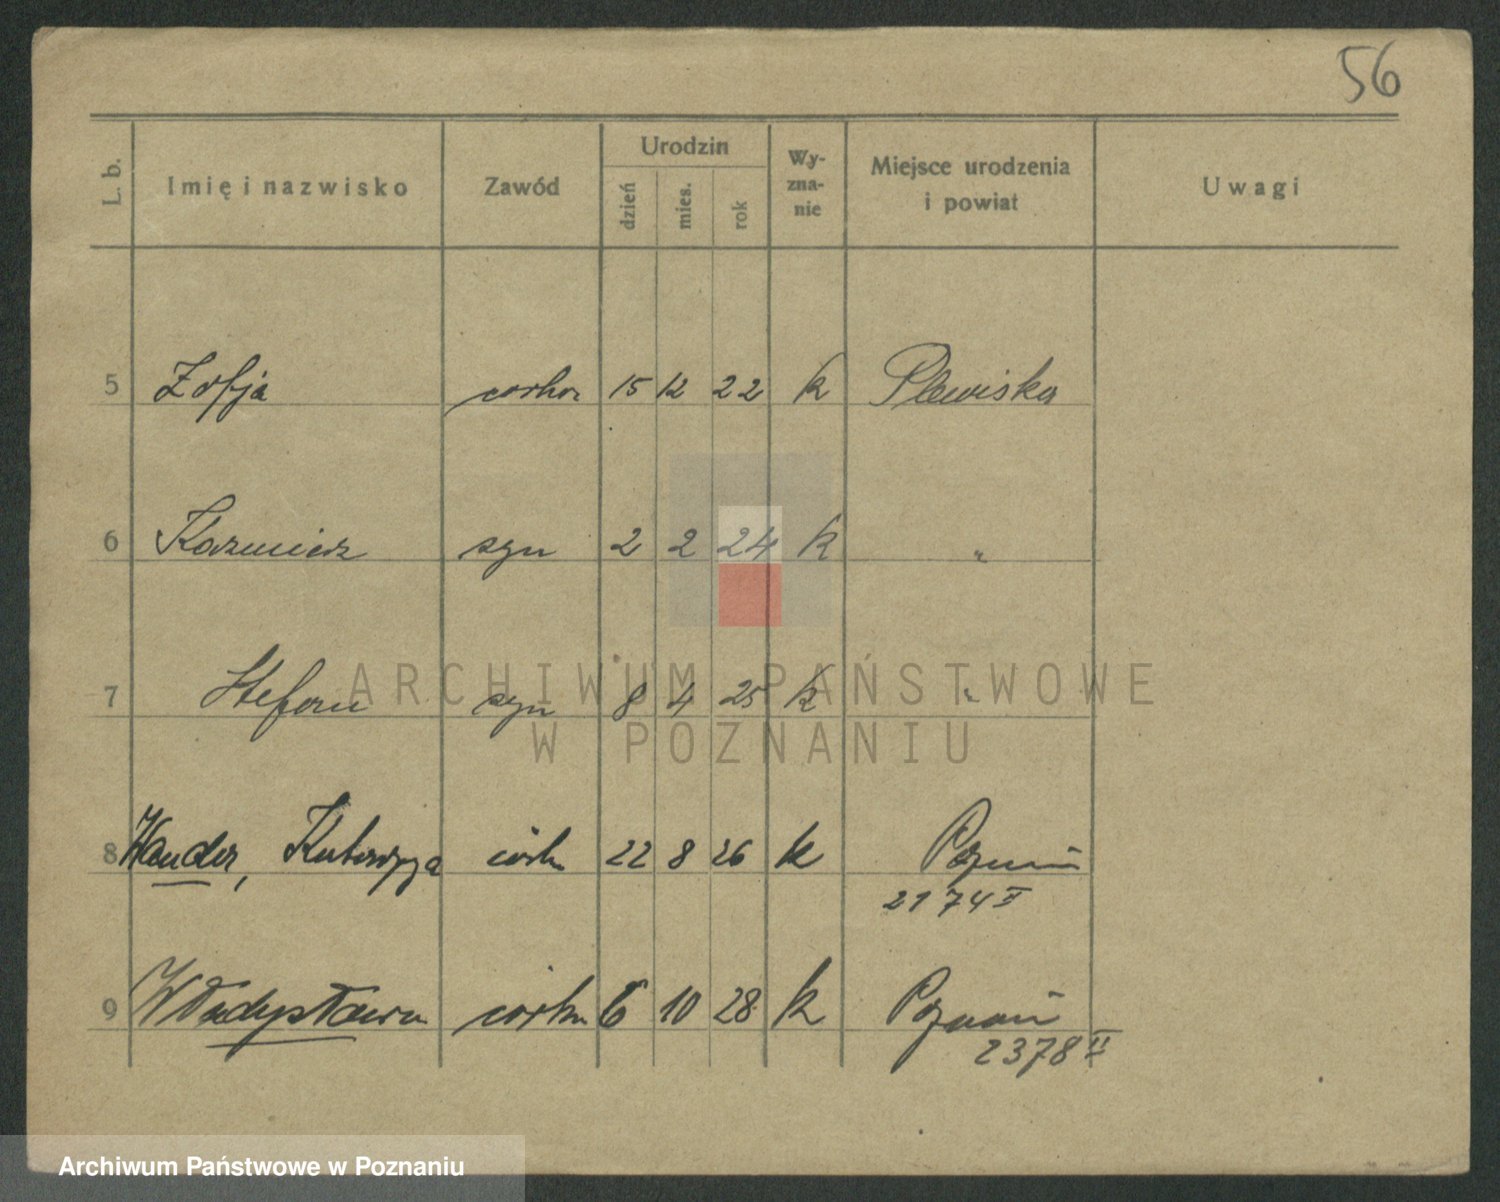 56
L. b. Imię i nazwisko Zawód Urodzin dzień mies. rok Wy-zna-nie Miejsce urodzenia i powiat Uwagi
5 Zofja córka 15 12 22 k Plewiska
6 Kazmierz syn 2 2 24 k "
7 Stefan syn 8 4 25 k "
8 Wanda, córka 22 8 26 k Poznań
2174 II
9 Władysława córka 6 10 28 k Poznań
2378 II
ARCHIWUM PAŃSTWOWE
W POZNANIU
Archiwum Państwowe w Poznaniu